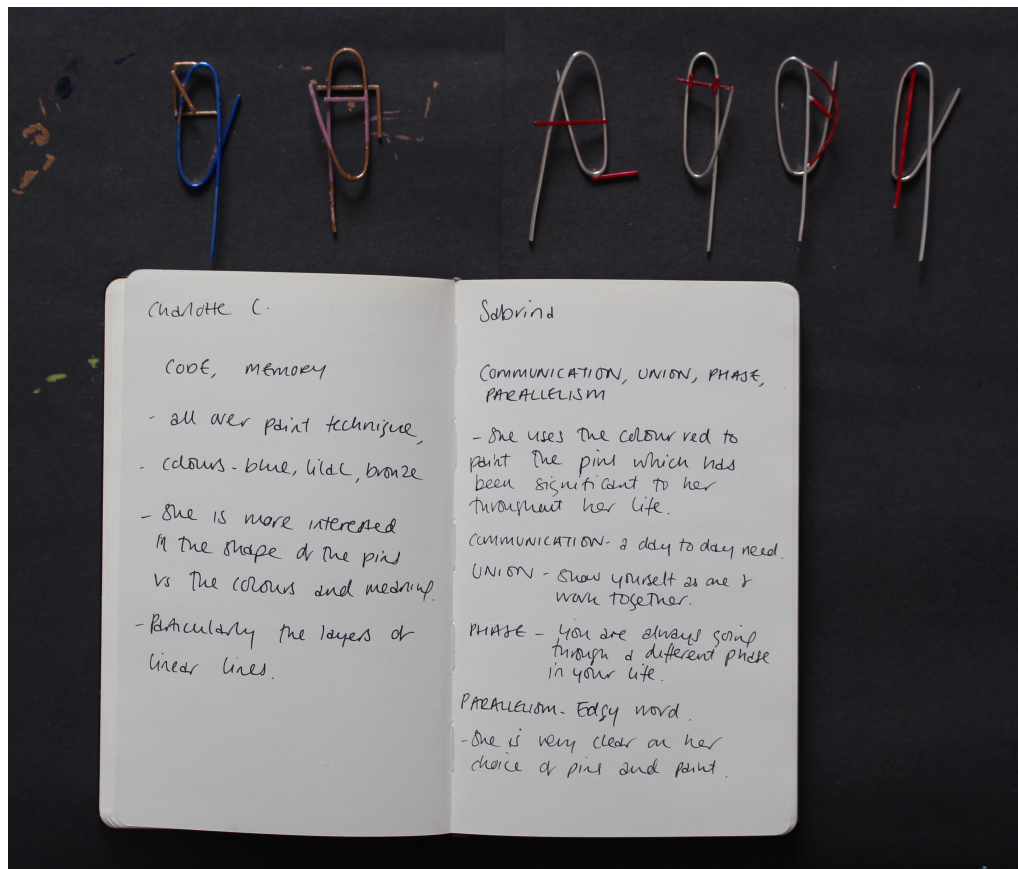 Charlotte C.
CODE, MEMORY
- all over paint technique,
- colours - blue, lilac, bronze
- She is more interested
in the shape of the pins
vs the colours and meaning.
- Particularly the layers of
linear lines.
Sabrina
COMMUNICATION, UNION, PHASE,
PARALLELISM
- She uses the colour red to
paint the pins which has
been significant to her
throughout her life.
COMMUNICATION - a day to day need.
UNION - Show yourself as one &
work together.
PHASE - you are always going
through a different phase
in your life.
PARALLELISM - Edgy word.
- She is very clear on her
choice of pins and paint.